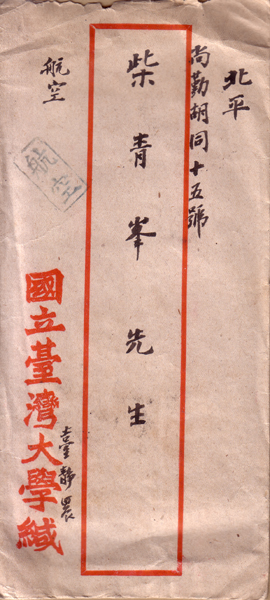 北平
尚勤胡同十五號
柴青峯先生
航空
航空
國立臺灣大學緘
臺靜農